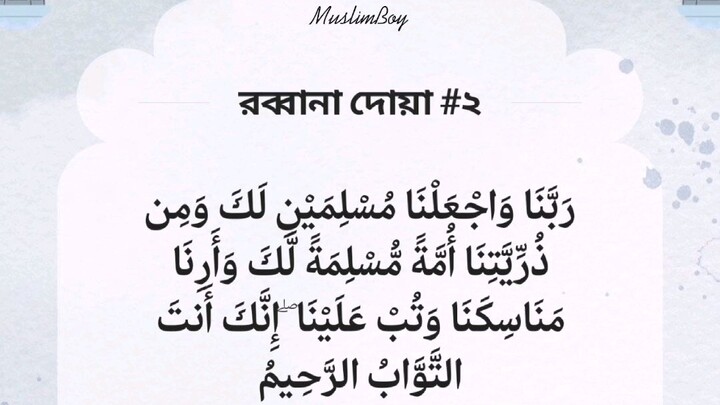 MuslimBoy
রব্বানা দোয়া #২
رَبَّنَا وَاجْعَلْنَا مُسْلِمَيْنِ لَكَ وَمِن
ذُرِّيَّتِنَا أُمَّةً مُّسْلِمَةً لَّكَ وَأَرِنَا
مَنَاسِكَنَا وَتُبْ عَلَيْنَا ۖ إِنَّكَ أَنتَ
التَّوَّابُ الرَّحِيمُ